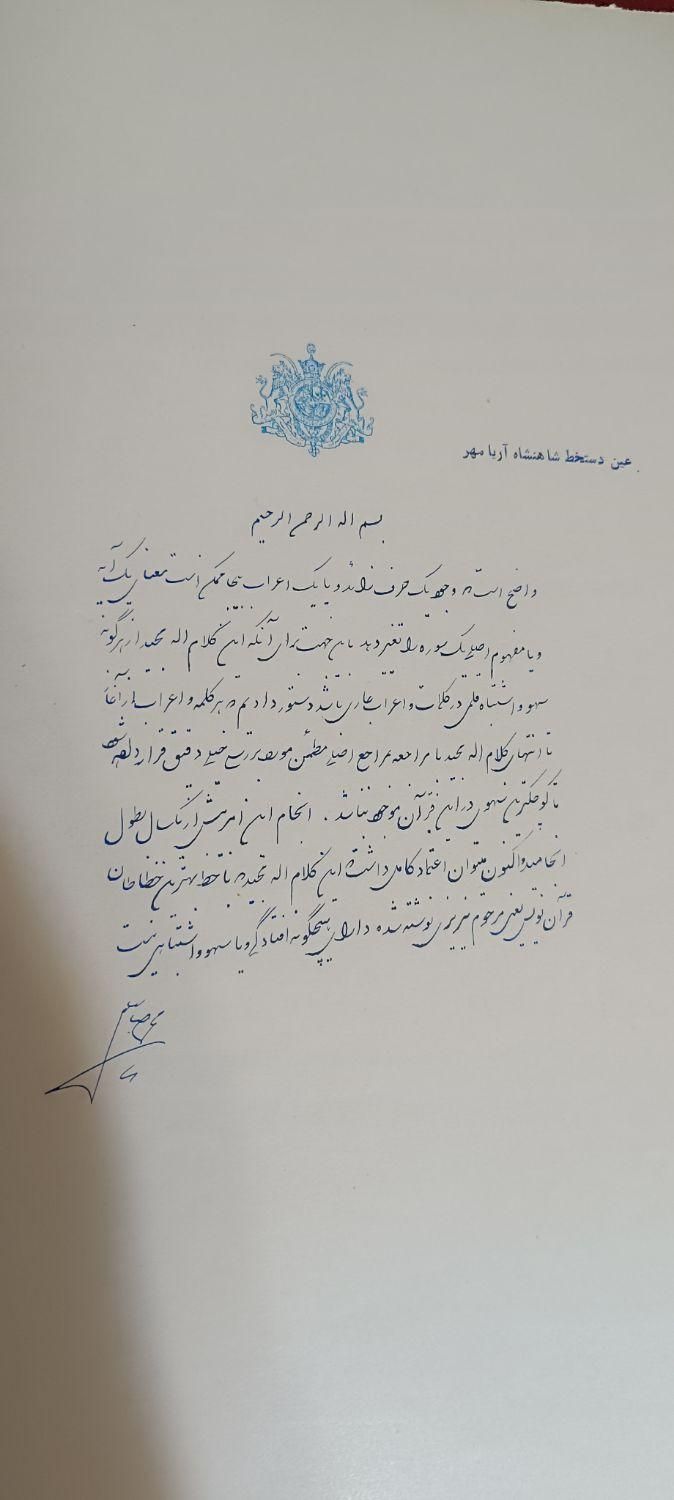 عین دستخط شاهنشاه آریا مهر
بسم اله الرحمن الرحیم
واضح است که وجود یک حرف زائد و یا یک اعراب بیجا ممکن است معنای یک آیه
و یا مفهوم اصلی یک سوره را تغییر دهد باین جهت برای آنکه این کلام اله مجید از هرگونه
سهو و اشتباه قلمی در کلمات و اعراب عاری باشد دستور دادیم که هر کلمه و اعراب را از آغاز
تا انتهای کلام اله مجید با مراجعه بمراجع اصلی مطمئن مورد بررسی خیلی دقیق قرار داده شود
تا کوچکترین سهوی در این قرآن موجود نباشد . انجام این امر بیش از یکسال بطول
انجامید و اکنون میتوان اعتماد کامل داشت که این کلام اله مجید که با خط بهترین خطاطان
قرآن نویس یعنی مرحوم نیریزی نوشته شده دارای هیچگونه افتادگی و یا سهو و اشتباهی نیست